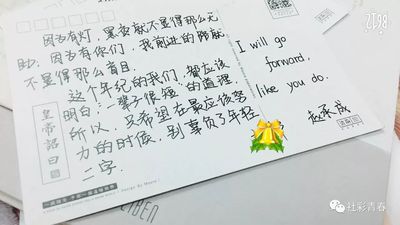 因为有灯 黑夜就不显得那么无
助,因为有你们,我前进的路就
不显得那么盲目
这个年纪的我们,都应该
明白:一辈子很短 的道理
所以,只希望在最应该努
力的时候,别辜负了年轻
二字.
I will go
forward,
like you do.
赵承成
皇帝詔曰
社彩青春